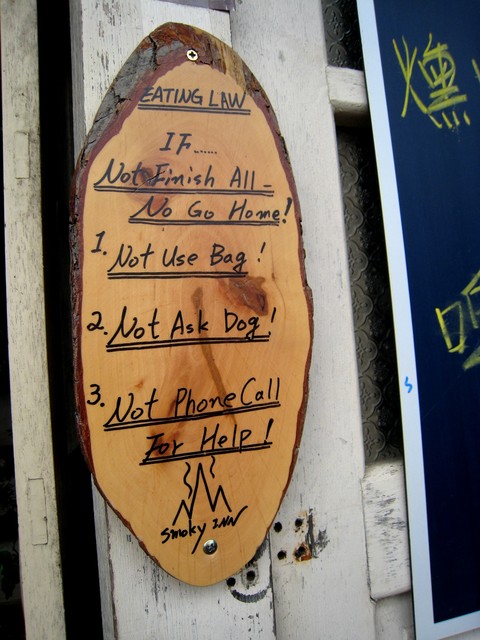 EATING LAW
IF......
Not Finish All -
No Go Home!
1. Not Use Bag!
2. Not Ask Dog!
3. Not Phone Call
For Help!
Smoky INN
燻